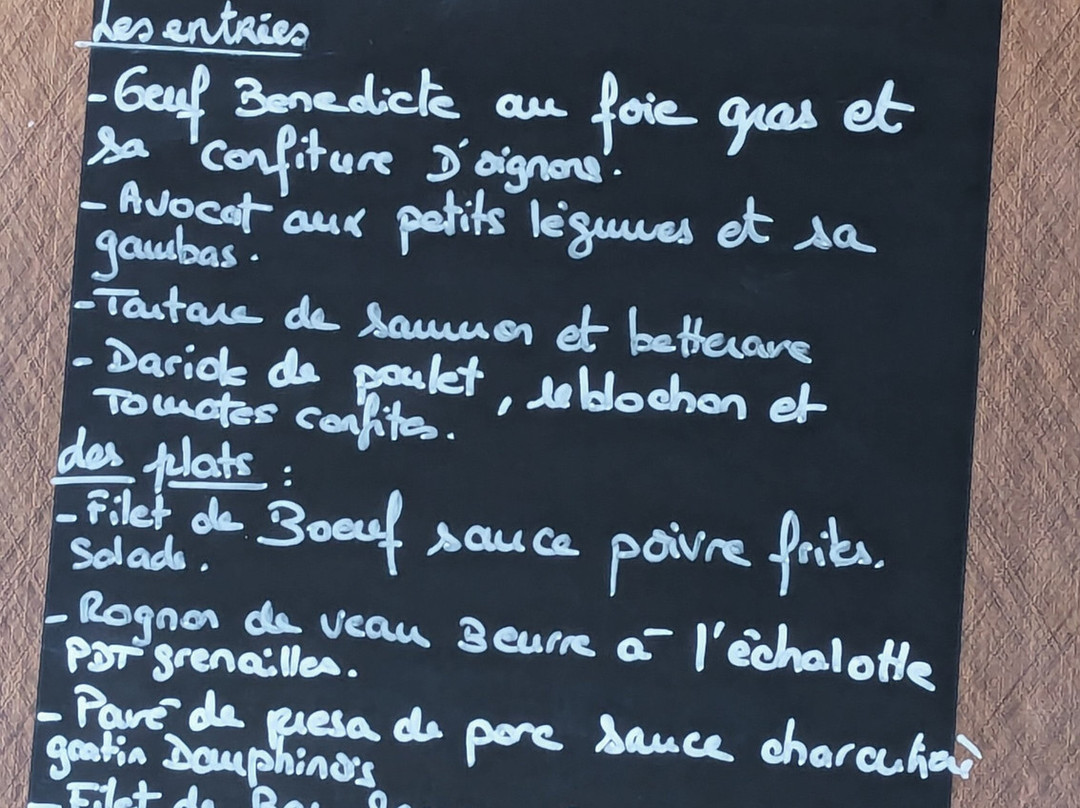 Les entrées
- Oeuf Benedicte au foie gras et
sa confiture D'oignons.
- Avocat aux petits légumes et sa
gambas.
- Tartare de saumon et betterave
- Dariole de poulet, reblochon et
Tomates confites.
des plats :
- Filet de Boeuf sauce poivre frites.
Salade.
- Rognon de veau Beurre à l'échalotte
PDT grenailles.
- Pavé de presa de porc sauce charcutière
gratin Dauphinois
- Filet de